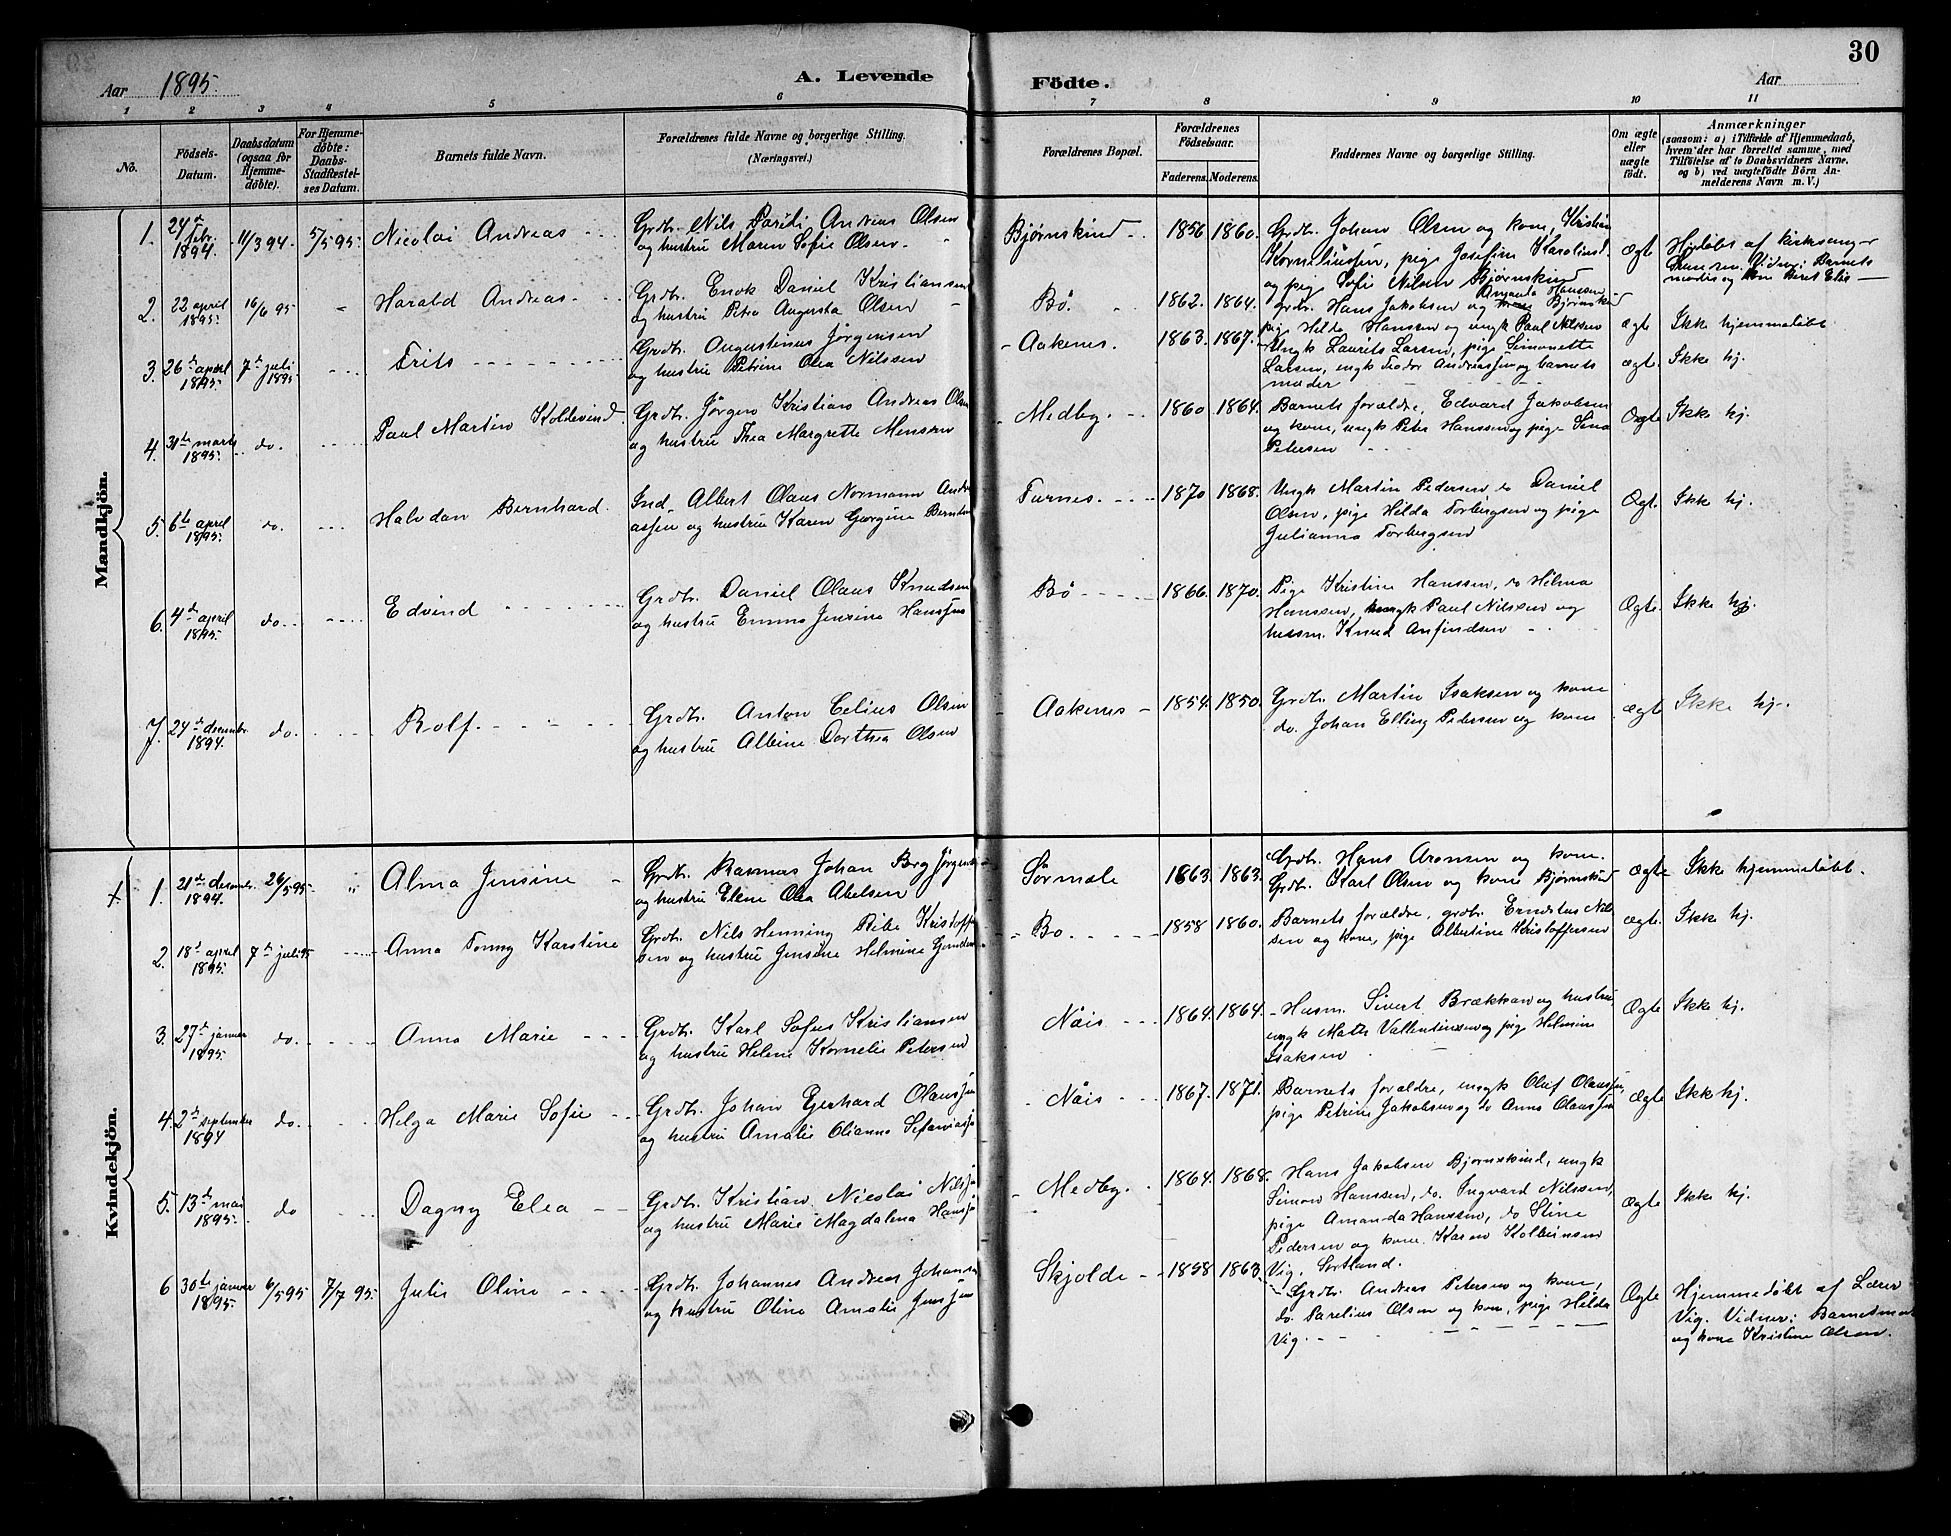 30
Aar 1895.
A. Levende
Födte.
Aar
1 2 3 4 5 6 7 8 9 10 11
No.
Födsels-Datum.
Daabsdatum (ogsaa for Hjemme-döbte).
For Hjemme-döbte: Daabs-Stadfæstel-ses Datum.
Barnets fulde Navn.
Forældrenes fulde Navne og borgerlige Stilling. (Næringsvei.)
Forældrenes Bopæl.
Forældrenes Födselsaar.
Faderens. Moderens.
Faddernes Navne og borgerlige Stilling.
Om ægte eller uægte födt.
Anmærkninger (saasom: a) i Tilfælde af Hjemmedaab, hvem der har forrettet samme, med Tilföielse af to Daabsvidners Navne. og b) ved uægtefödte Börn An-melderens Navn m. V.)
Mandkjön.
1. 24de febr. 1894. 11/3 94. 5/5 95. Nicolai Andreas
Grdb. Nils Andreas Olsen
og hustru Maren Sofie Olsen
Bjørnskind 1856 1860.
Grdb. Johan Olsen og kone, Kristine
Korneliussen, pige Josefine Karolius
og pige Sofie Nilsen Bjørnskind
Ægte
Hjdøbt af kirkesanger
Vidner: Barnets
moder og
2. 22 april 1895. 16/6 95 Harald Andreas
Grdb. Enok Daniel Kristiansen
og hustru Petra Augusta Olsen
Bö. 1862. 1864.
grdb. Hans Jakobsen og Amanda Hanssen Bjørnskind
pige Helda Hanssen og ungk Paul Nilsen
ægte Ikke hjemmedöbt
3. 26de april 1895. 7de juli 1895 Frits
Grdb. Augustinus Jørgensen
og hustru Petrine Olea Nilssen
Aakenes. 1863. 1867.
Ungk Laurits Larsen, pige Simonette
Larsen, ungk Teodor Andreassen og barnets
moder
ægte. Ikke hj.
4. 31te marts 1895. do. Paul Martin Koldevind.
Grdb. Jørgen Kristian Andreas Olsen
og hustru Thea Margrette Monsen
Medby. 1860 1864.
Barnets forældre, Edvard Jakobsen
og kone, ungk Peter Hanssen og pige Sina
Petersen
Ægte Ikke hj.
5. 6te april 1895. do. Halvdan Bernhard.
Ind. Albert Olaus Normann Andre-
assen og hustru Karen Georgine Berntsen
Furnes. 1870 1868.
Ungk Martin Pedersen, do Daniel
Olsen, pige Helda Torbergsen og pige
Julianna Torbergsen
Ægte. Ikke hj.
6. 4de april 1895. do. Edvind
Grdb. Daniel Olaus Knudsen
og hustru Emma Jensine Hanssen
Bö 1866. 1870.
Pige Kristine Hanssen, do Hilma
Hanssen, ungk Paul Nilssen og
husm. Knud Anfindsen
Ægte. Ikke hj.
7. 24de decembr. 1894. do. Rolf.
Grdb. Anton Celius Olsen
og hustru Albine Dorthea Olsen
Aakenes 1854. 1850.
Grdb. Martin Isaksen og kone
do. Johan Elling Petersen og kone
Ægte Ikke hj.
Kvindekjön.
1. 21de decembr. 1894. 26/5 95. Alma Jensine
Grdb. Rasmus Johan Berg Jørgensen
og hustru Elene Olea Abelsen
Sørmele 1863. 1863.
Grdb. Hans Aronsen og kone.
Grdb. Karl Olsen og kone Bjørnskind
Ægte Ikke hjemmedöbt.
2. 18de april 1895. 7de juli 95 Anna Tonny Karstine
Grdb. Nils Henning Ribe Kristoffer-
sen og hustru Jensine Helmine
Bö. 1858 1860.
Barnets forældre, grdb. Erndstus Nil-
sen og kone, pige Albertine Kristoffersen
ægte. Ikke hj.
3. 27de januar 1895. do. Anna Marie
Grdb. Karl Sofus Kristiansen
og hustru Helene Kornelie Petersen
Nöis 1864. 1864.
Husm. Sivert Brækkan og hustru,
ungk Mathis Vallentinsen og pige Helmine
Isaksen
Ægte Ikke hj.
4. 2de september 1894 do. Helga Marie Sofie
Grdb. Johan Gerhard Olaussen
og hustru Amalie Olianna
Nöis 1867. 1871.
Barnets forældre, ungk Oluf Olaussen,
pige Petrine Jakobsen og do Anna Olaussen
Ægte Ikke hj.
5. 13de mai 1895. do Dagny Elea
Grdb. Kristian Nicolai Nilssen
og hustru Marie Magdalena Hanssen
Medby. 1864. 1868.
Hans Jakobsen Bjørnskind, ungk
Simon Hanssen, do. Ingvard Nilssen,
pige Amanda Hanssen, do Stine
Pedersen og kone Karen Kolbeinsen
Vig, Sortland.
Ægte Ikke hj.
6 30te januar 1895. 6/5 95 7/7 95. Julie Oline
Grdb. Johannes Andreas Johansen
og hustru Oline Amalie Jenssen
Skjolde 1858 1863
Grdb. Andreas Petersen og kone,
do. Parelius Olsen og kone, pige Helda
Vig.
Ægte Hjemmedöbt af Lærer
Vig. Vidner: Barnets mor
og kone Kristine Olsen.